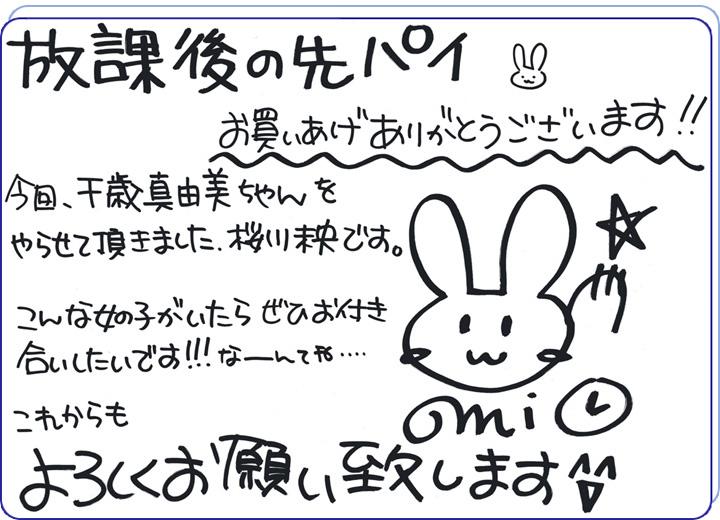 放課後の先パイ
お買いあげありがとうございます!!
今回、千歳真由美ちゃんを
やらせて頂きました、桜川未央です。
こんな女の子がいたら ぜひお付き
合いしたいです!!! なーんてね‥‥
これからも
よろしくお願い致します
omi